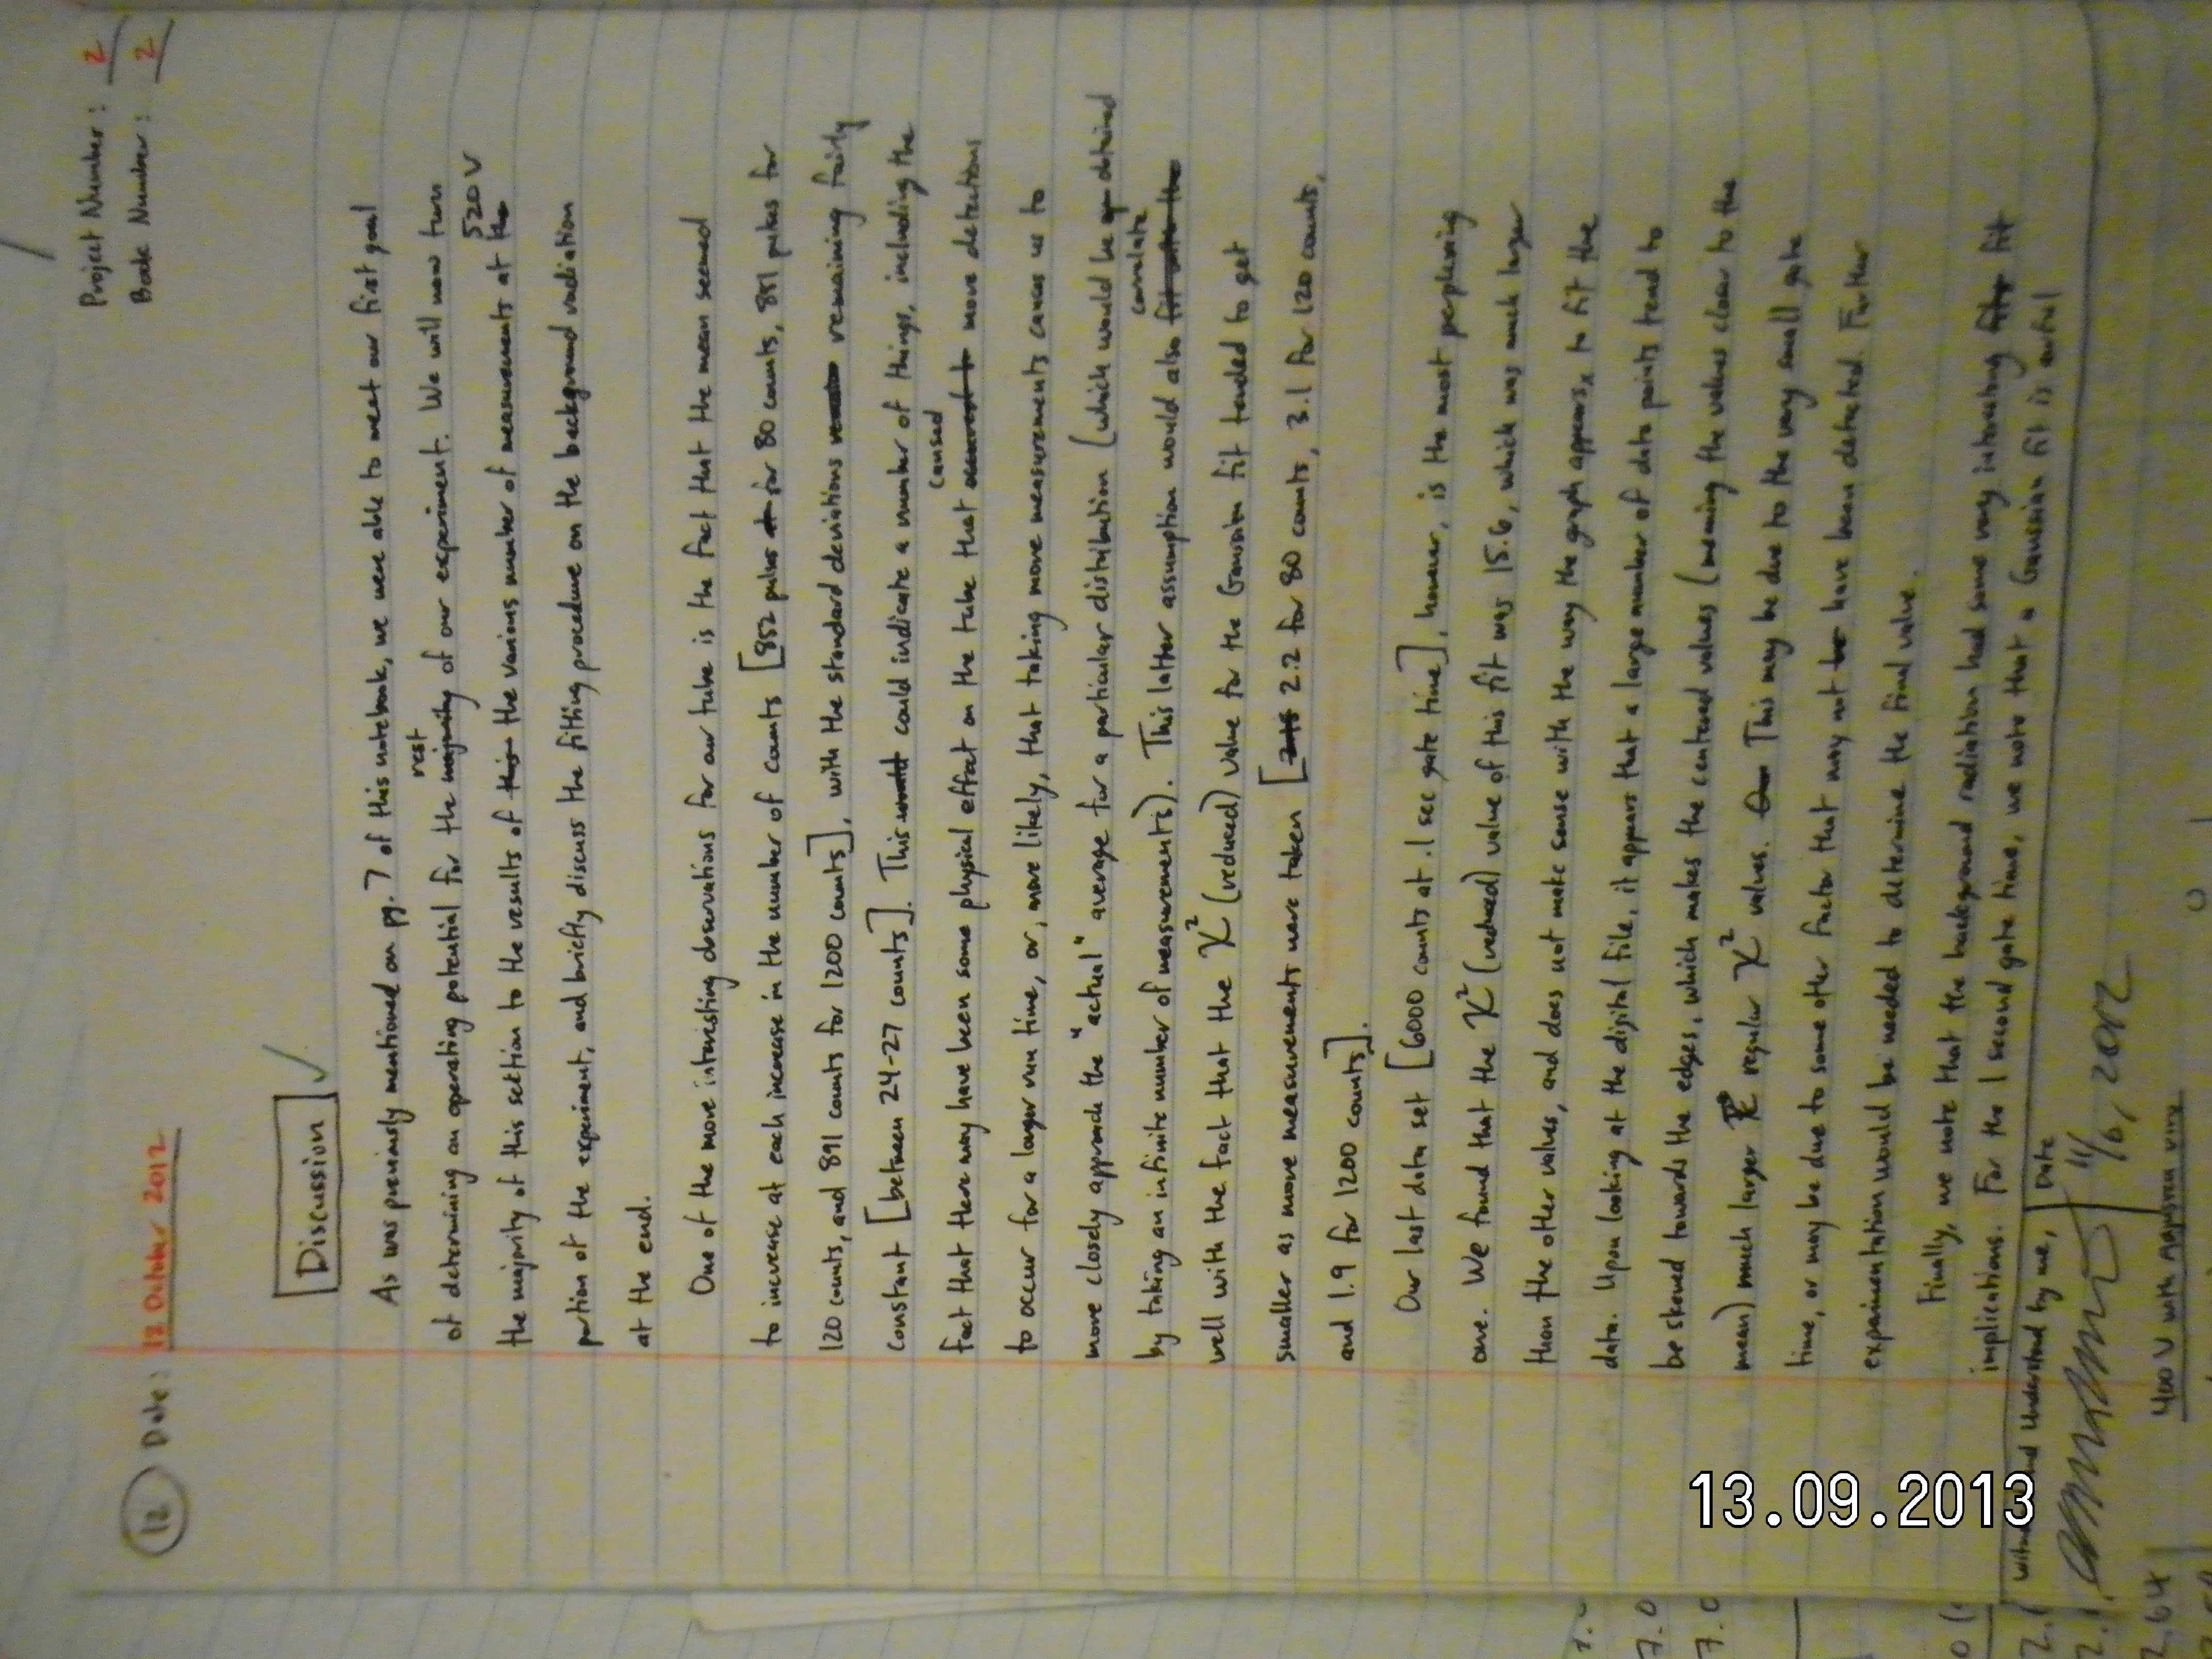 12 Date: 12 October 2012
Project Number: 2
Book Number: 2
Discussion
As was previously mentioned on pg. 7 of this notebook, we were able to meet our first goal
of determining an operating potential for the majority rest of our experiment. We will now turn
the majority of this section to the results of this the various number of measurements at the 520 V
portion of the experiment, and briefly discuss the fitting procedure on the background radiation
at the end.
One of the more interesting observations for our tube is the fact that the mean seemed
to increase at each increase in the number of counts [852 pulses for 80 counts, 881 pulses for
120 counts, and 891 counts for 1200 counts], with the standard deviations remaining fairly
constant [between 24-27 counts]. This would could indicate a number of things, including the
fact that there may have been some physical effect on the tube that caused more detections
to occur for a longer run time, or, more likely, that taking more measurements causes us to
more closely approach the "actual" average for a particular distribution (which would be obtained
by taking an infinite number of measurements). This latter assumption would also fit with the correlate
well with the fact that the χ² (reduced) value for the Gaussian fit tended to get
smaller as more measurements were taken [2.2 for 80 counts, 3.1 for 120 counts,
and 1.9 for 1200 counts].
Our last data set [6000 counts at .1 sec gate time], however, is the most perplexing
one. We found that the χ² (reduced) value of this fit was 15.6, which was much larger
than the other values, and does not make sense with the way the graph appears to fit the
data. Upon looking at the digital file, it appears that a large number of data points tend to
be skewed towards the edges, which makes the centered values (meaning the values closer to the
mean) much larger regular χ² values. This may be due to the very small gate
time, or may be due to some other factor that may not have been detected. Further
experimentation would be needed to determine the final value.
Finally, we note that the background radiation had some very interesting fit
implications. For the 1 second gate time, we note that a Gaussian fit is awful
and Understood by me,
Date
11/6, 2012
400 V with
7.0
7.0
2.64
13.09.2013